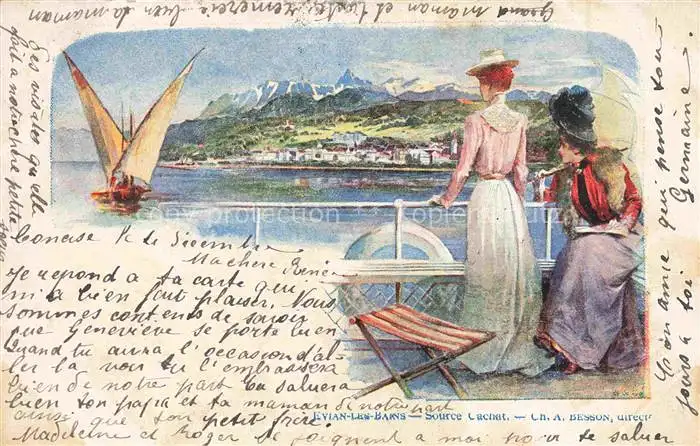 Concise le de Décembre
Ma chère Renée
Je repond a ta carte qui
m'a bien fait plaisir. Nous
sommes contents de savoir
que Geneviève se porte bien
Quand tu auras l'occasion d'al-
ler la voir tu l'embrassera
bien de notre part tu saluera
bien ton papa et ta maman de notre part
ainsi que ton petit frère.
Madeleine et Roger se joignent a moi pour te saluer
Ton amie qui pense tou
jours a toi
Germaine
maman et remercie bien ta maman
des visites qu'elle
fait a notre chère petite
EVIAN-LES-BAINS — Source Cachat. — Ch. A. BESSON, direct
copyright protection